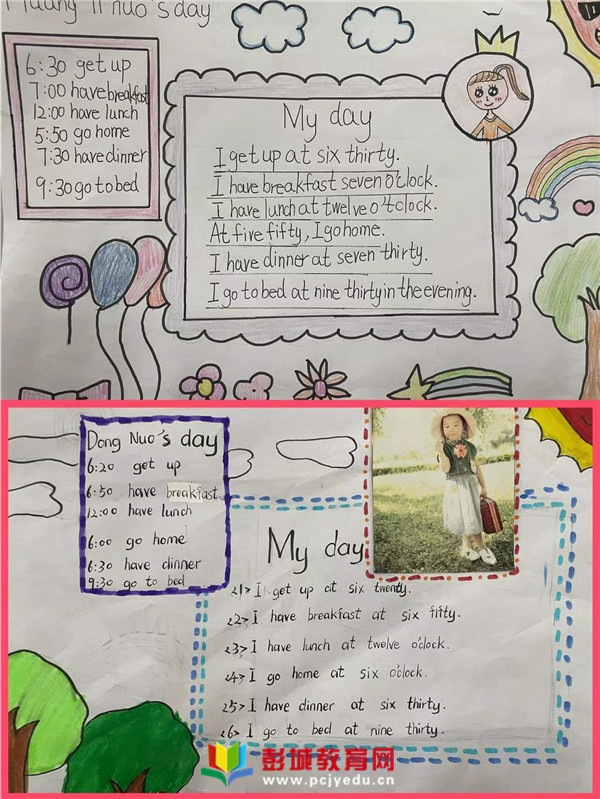 Huang Yi nuo's day
6:30 get up
7:00 have breakfast
12:00 have lunch
5:50 go home
7:30 have dinner
9:30 go to bed
My day
I get up at six thirty.
I have breakfast seven o'clock.
I have lunch at twelve o'tclock.
At five fifty, I go home.
I have dinner at seven thirty.
I go to bed at nine thirty in the evening.
Dong Nuo's day
6:20 get up
6:50 have breakfast
12:00 have lunch
6:00 go home
6:30 have dinner
9:30 go to bed
My day
<1> I get up at six twenty.
<2> I have breakfast at six fifty.
<3> I have lunch at twelve o'clock.
<4> I go home at six o'clock.
<5> I have dinner at six thirty.
<6> I go to bed at nine thirty.
彭城教育网
www.pcjyedu.cn